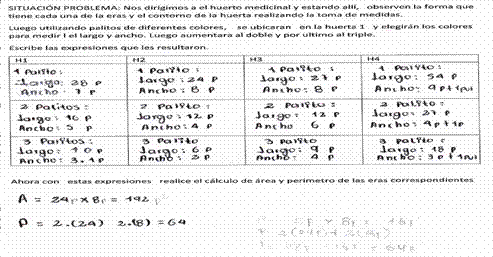 SITUACIÓN PROBLEMA: Nos dirigimos a el huerto medicinal y estando allí, observen la forma que
tiene cada una de la eras y el contorno de la huerta realizando la toma de medidas.
Luego utilizando palitos de diferentes colores, se ubicaran en la huerta 1 y elegirán los colores
para medir l el largo y ancho. Luego aumentara al doble y por ultimo al triple.
Escribe las expresiones que les resultaron.
H1 H2 H3 H4
1 Palito: 1 Palito: 1 Palito: 1 Palito:
Largo: 28 P Largo: 24 P Largo: 27 P Largo: 54 P
Ancho: 7 P Ancho: 8 P Ancho: 8 P Ancho: 9P+1
2 Palitos: 2 Palito: 2 Palito: 2 Palito:
Largo: 16 P Largo: 12 P Largo: 12 P Largo: 27 P
Ancho: 5 P Ancho: 4 P Ancho 6 P Ancho: 4P+1P
3 Palitos: 3 Palito 3 Palito 3 Palito:
Largo: 10 P Largo: 6 P Largo: 9 P Largo: 18 P
Ancho: 3.1P Ancho: 3 P Ancho: 4 P Ancho: 3P+1
Ahora con estas expresiones realice el cálculo de área y perímetro de las eras correspondientes
A = 24P x 8P = 192
P = 2.(24) 2.(8) = 64